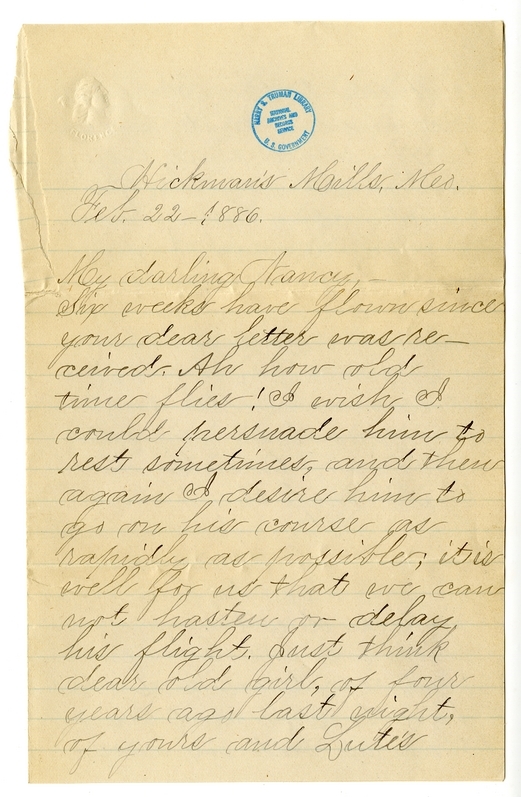 HARRY S. TRUMAN LIBRARY
NATIONAL
ARCHIVES AND
RECORDS
SERVICE
U. S. GOVERNMENT
Hickman's Mills, Mo.
Feb. 22 - 1886.
My darling Nancy, -
Six weeks have flown since
your dear letter was re-
ceived. Ah how old
time flies! I wish I
could persuade him to
rest sometimes, and then
again I desire him to
go on his course as
rapidly as possible; it is
well for us that we can
not hasten or delay
his flight. Just think
dear old girl, of four
years ago last night,
of yours and Lute's